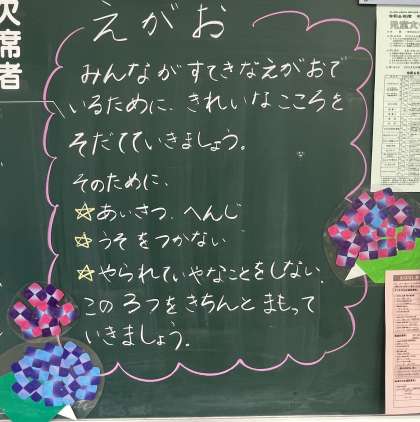 欠席者
えがお
みんなが すてきなえがおで
いるために、きれいなこころを
そだてていきましょう。
そのために、
☆あいさつ、へんじ
☆うそをつかない
☆やられていやなことをしない
この3つをきちんとまもって
いきましょう。